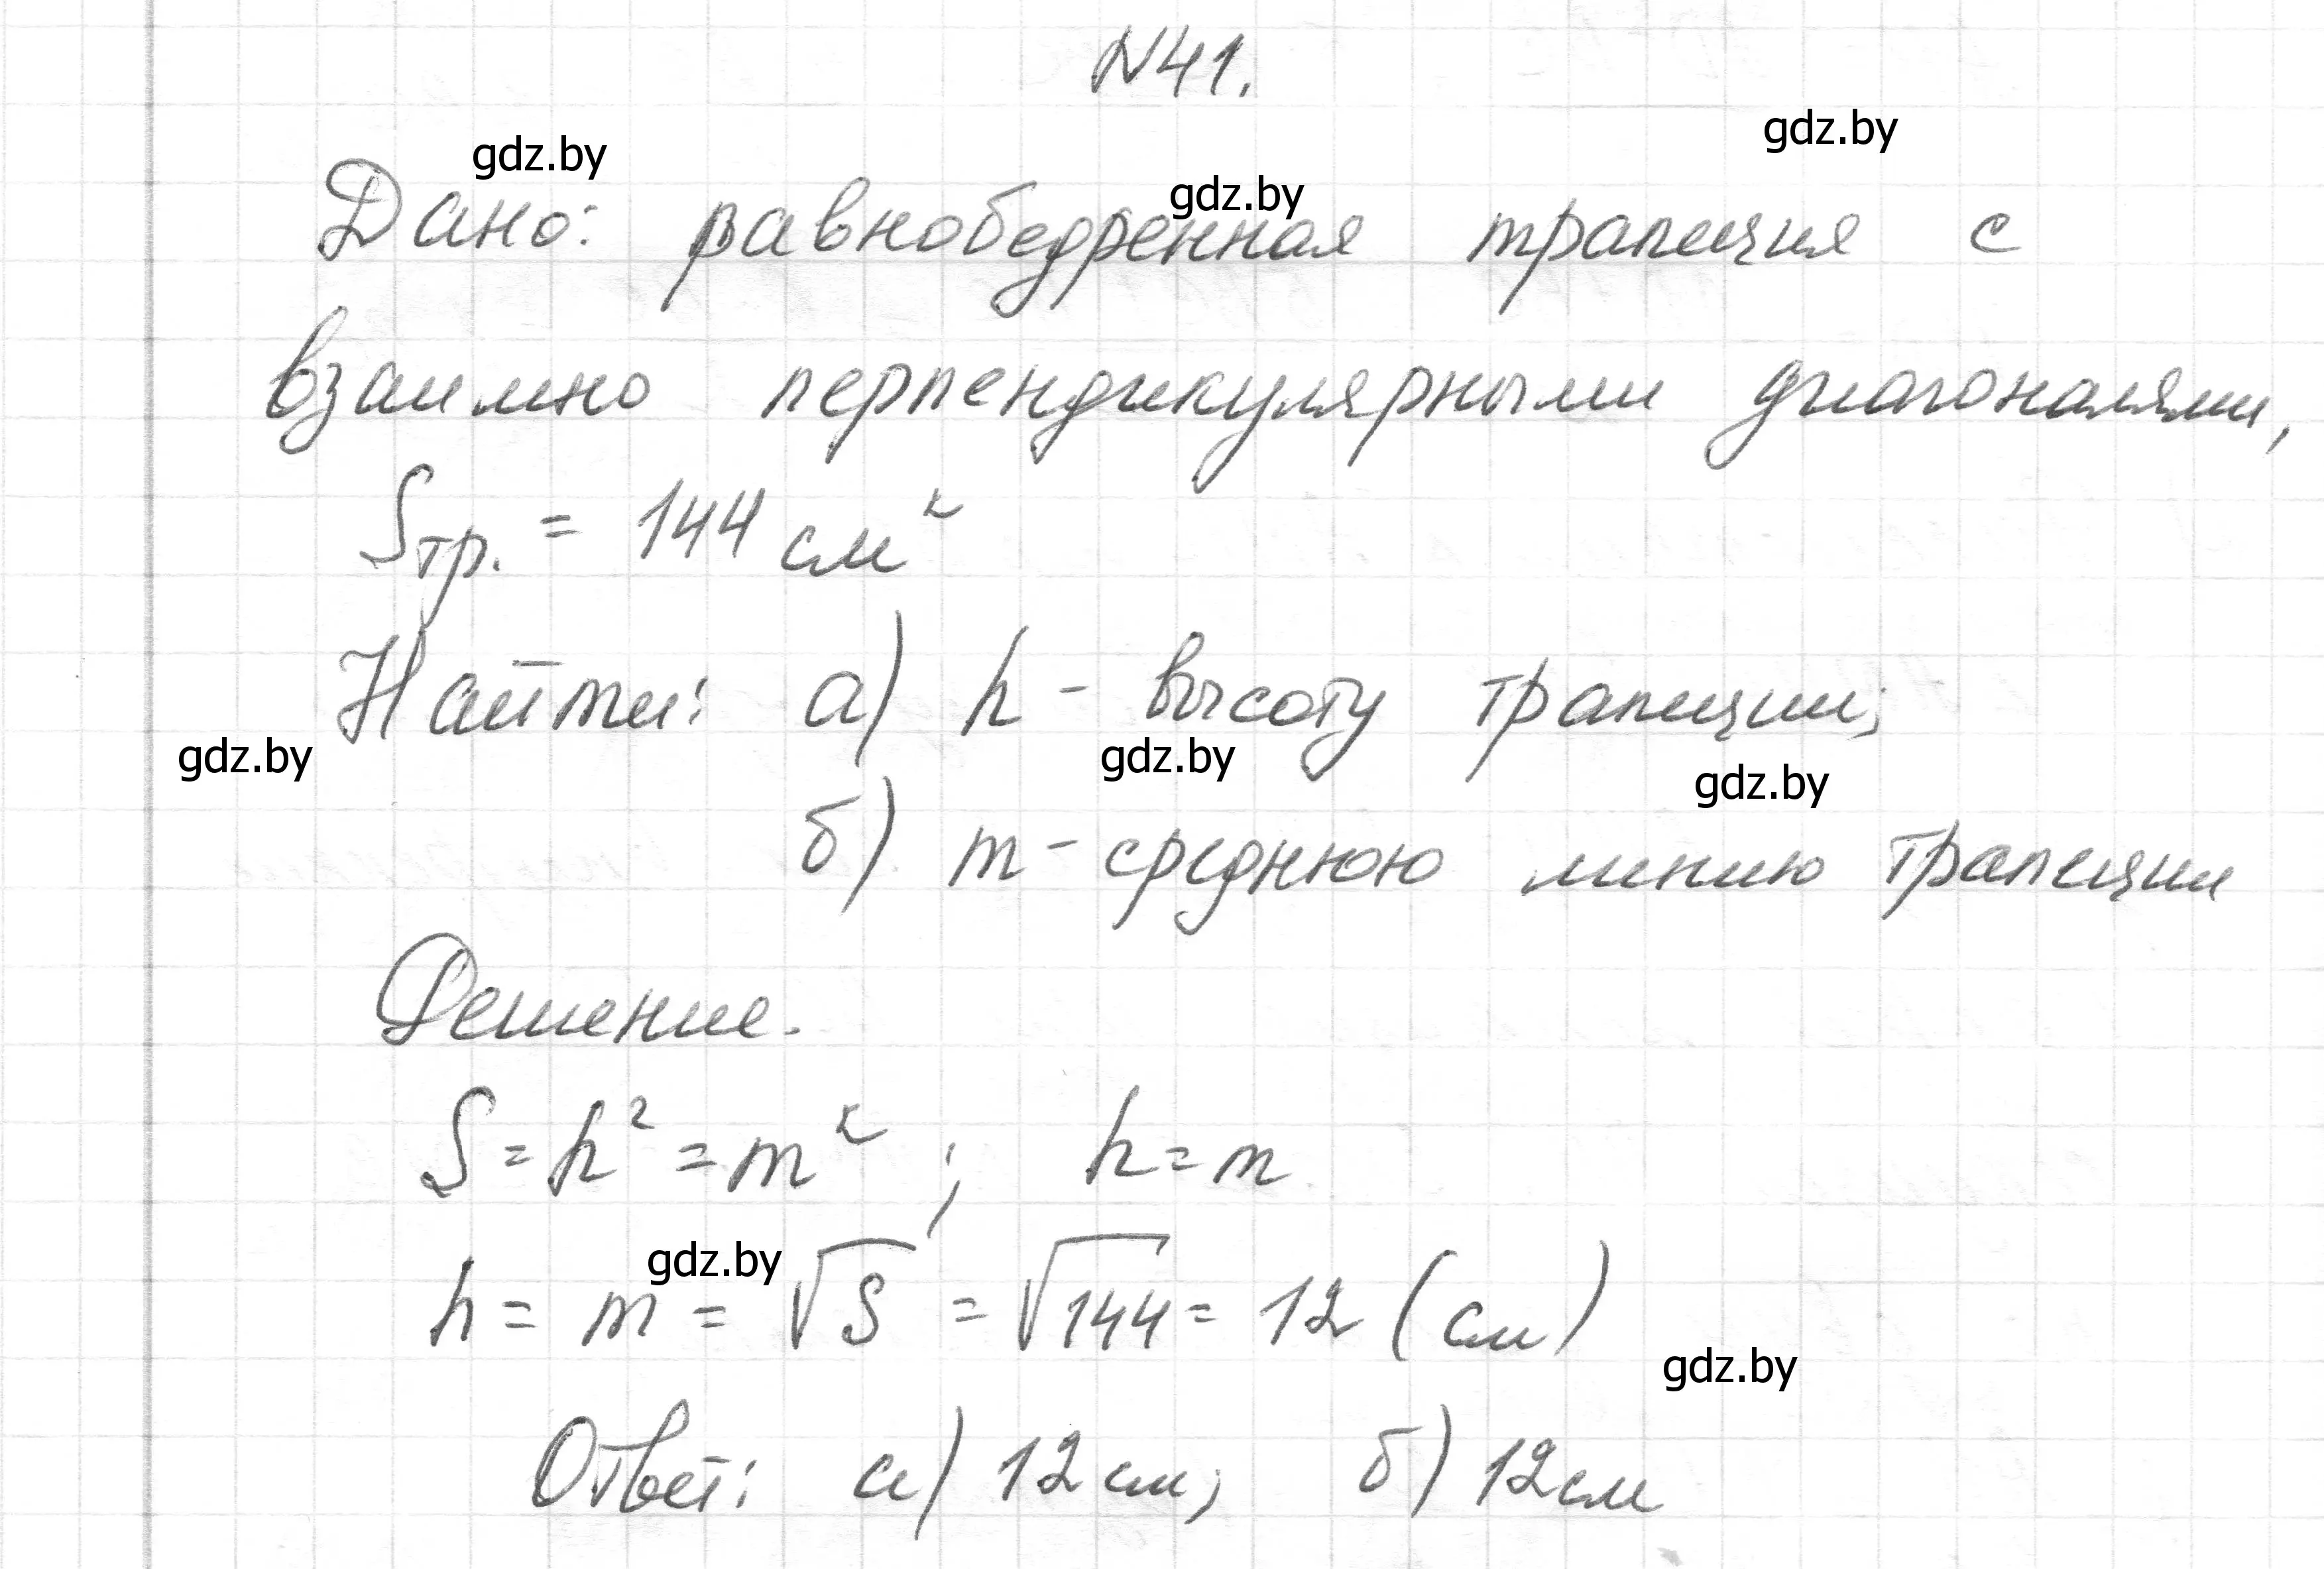 N41.
gdz.by
gdz.by
gdz.by
Дано: равнобедренная трапеция с
взаимно перпендикулярными диагоналями,
Sтр. = 144 см²
Найти: а) h - высоту трапеции;
gdz.by
gdz.by
gdz.by
б) m - среднюю линию трапеции
Решение.
S = h² = m² ; h = m
gdz.by
h = m = √S = √144 = 12 (см)
gdz.by
Ответ: а) 12 см; б) 12 см